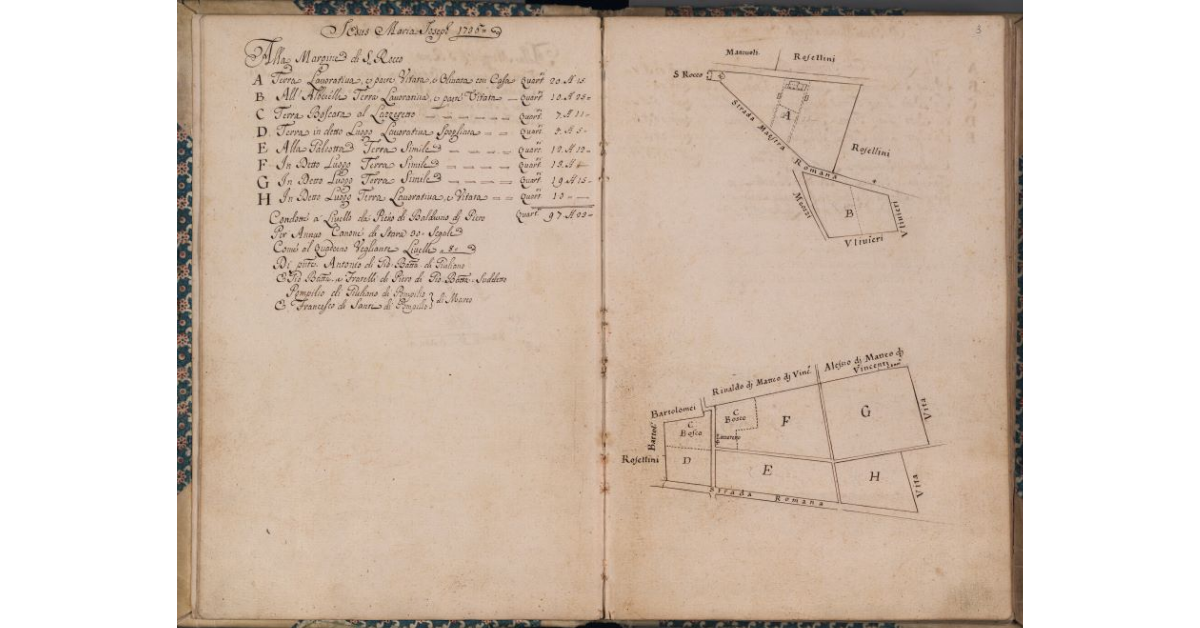 Jesus Maria Joseph
Alla Margine di S. Rocco
A Terra Lavorativa, e parte Vitata, e Olivata con Casa Quar. 20 A 15
B All' Terra Lavorativa, e parte Vitata — Quar. 10 A 25
C Terra Boscata al Lazzeretto Quar. 7 A 11
D Terra in detto Luogo Lavorativa Spogliata Quar.
E Alla Terra Simile Quar. 12 A 12
F In Detto Luogo Terra Simile Quar. 18 A
G In Detto Luogo Terra Simile Quar. 19 A 15
H In Detto Luogo Terra Lavorativa, e Vitata Quar.
Quar. 97 A 03
Condoni a Livello da Piero di Balduino di Piero
Per Annuo Canone di Staia 30 Segale
Come al Quaderno Vegliante Livelli 8
Di Antonio di Gio: Batta: di Giuliano
E Gio Batta: e Fratelli di Piero di Gio: Batta: Suddetto
Pompilio di Giuliano di Pompilio
E Francesco di Sante di Pompilio } di Marco
3
Mannuoli
Rosellini
S. Rocco
A
Strada Maestra Romana
Rosellini
Maceri
B
Ulivieri
Ulivieri
Rinaldo di Matteo di Vinc.
Matteo di
Bartolomei
Bartol.
C
Bosco
C
Bosco
F
G
Vita
Rosellini
D
E
H
Vita
Strada Romana